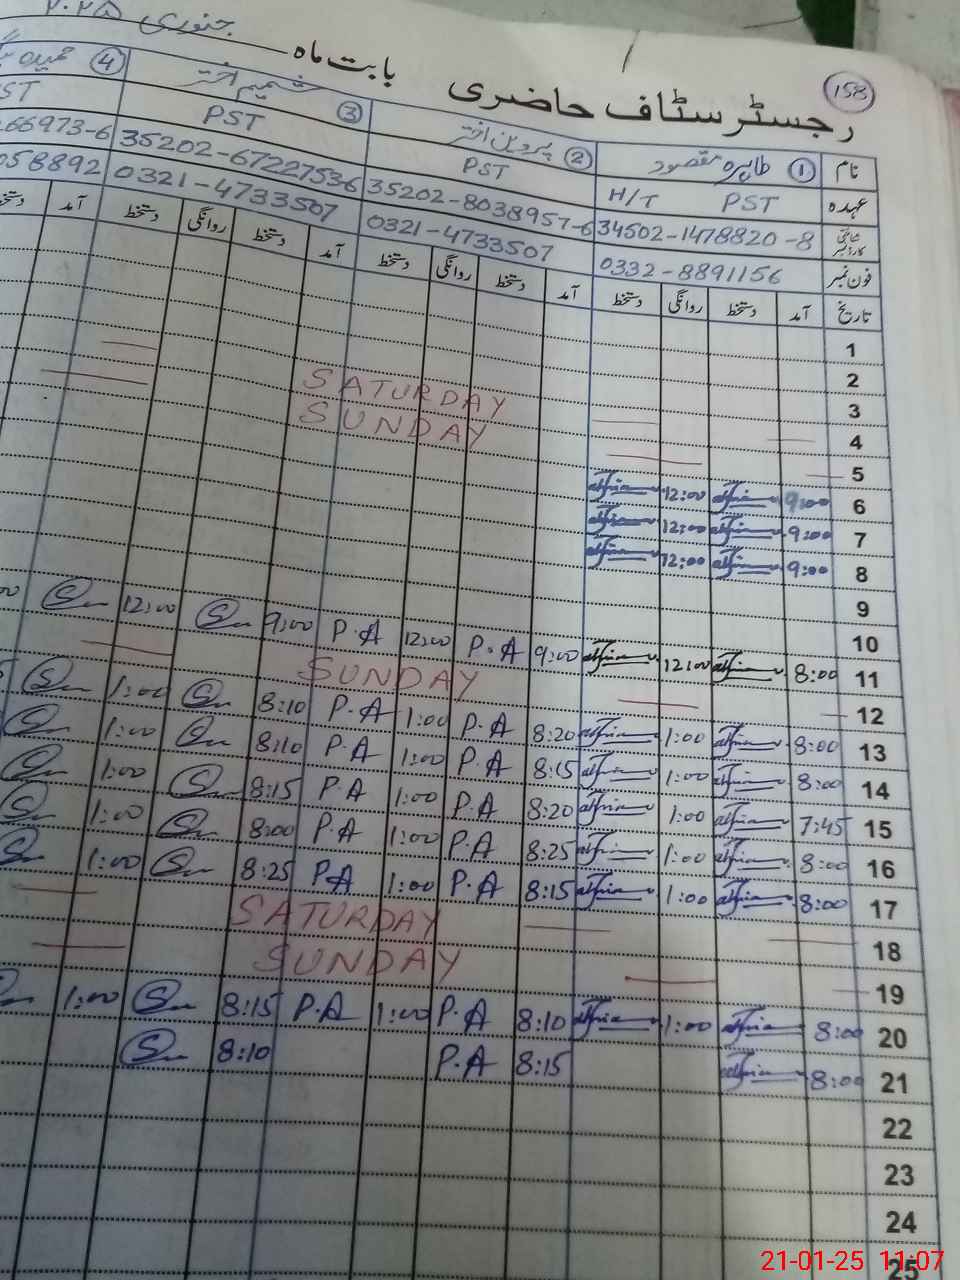 158
رجسٹر سٹاف حاضری بابت ماہ جنوری ۲۰۲۵
نام ① طاہرہ مقصود ② پروین اختر ③ شمیم اختر ④ حمیدہ
عہدہ H/T PST PST PST ST
شناختی کارڈ نمبر 34502-1478820-8 35202-8038957-6 35202-67227536 66973-6
فون نمبر 0332-8891156 0321-4733507 0321-4733507 058892
تاریخ آمد دستخط روانگی دستخط آمد دستخط روانگی دستخط آمد دستخط روانگی دستخط آمد دستخط
1
2
3
4 SATURDAY
5 SUNDAY
6 9:00 12:00
7 9:00 12:00
8 9:00 12:00
9
10
11 8:00 12:00 9:00 P.A 12:00 P.A 9:00 12:00
12 SUNDAY
13 8:00 1:00 8:20 P.A 1:00 P.A 8:10 1:00
14 8:00 1:00 8:15 P.A 1:00 P.A 8:10 1:00
15 7:45 1:00 8:20 P.A 1:00 P.A 8:15 1:00
16 8:00 1:00 8:25 P.A 1:00 P.A 8:00 1:00
17 8:00 1:00 8:15 P.A 1:00 P.A 8:25 1:00
18 SATURDAY
19 SUNDAY
20 8:00 1:00 8:10 P.A 1:00 P.A 8:15 1:00
21 8:00 8:15 P.A 8:10
22
23
24
25
21-01-25 11:07